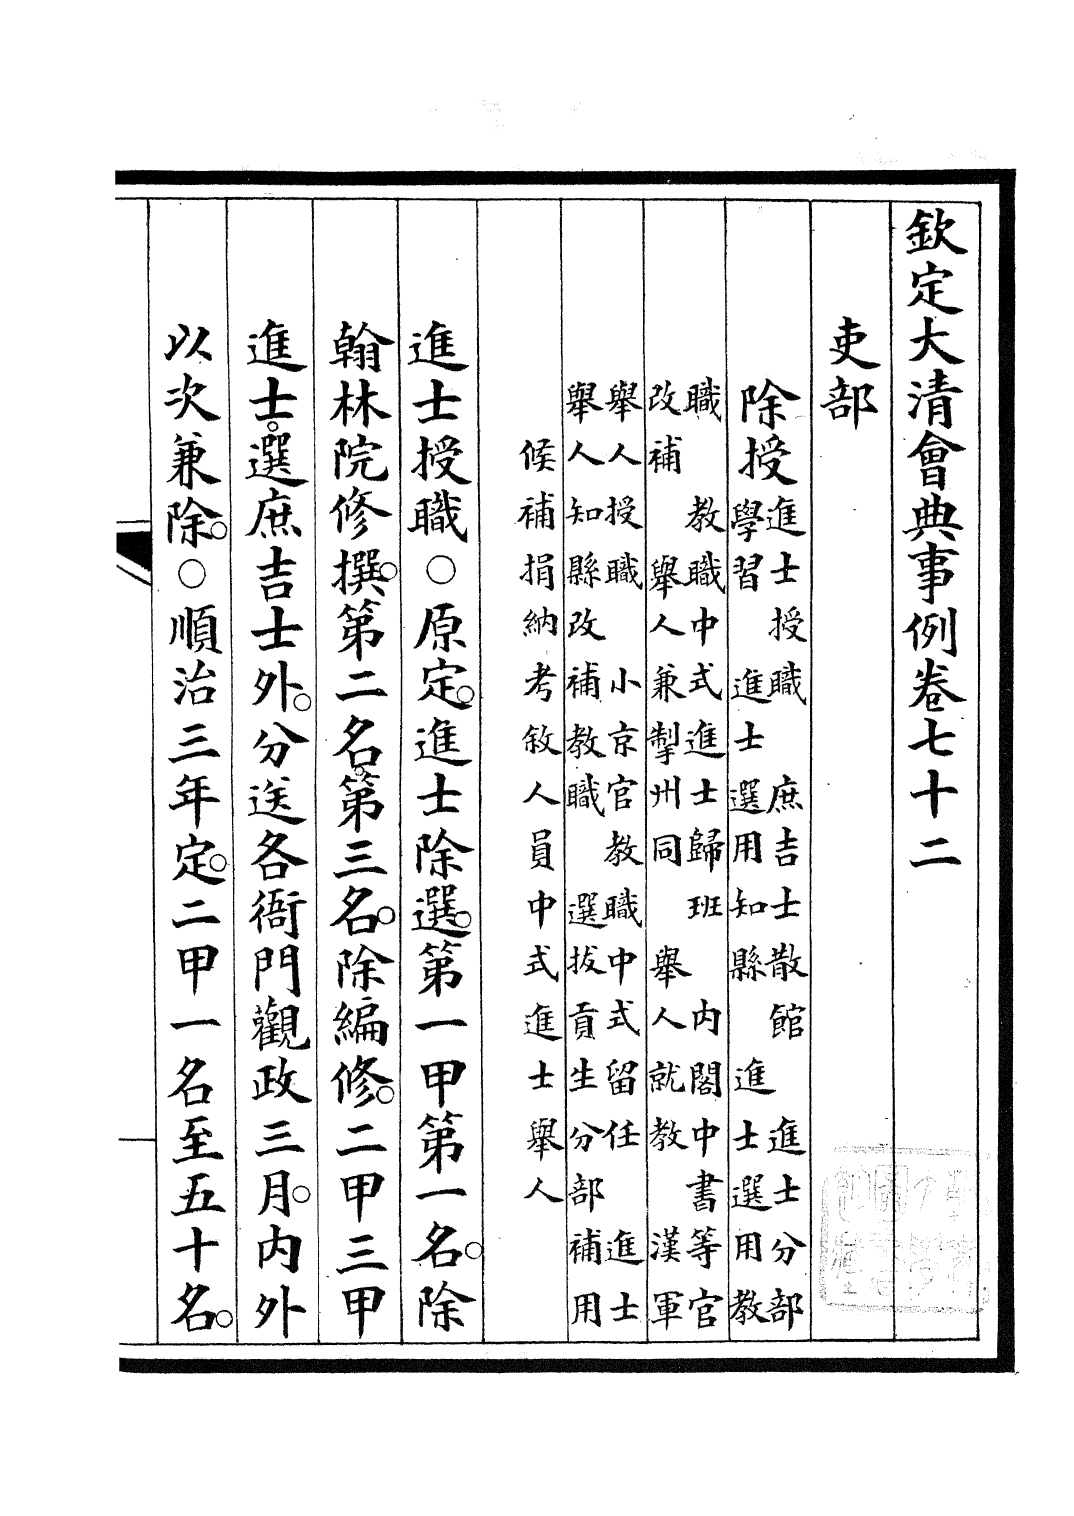 欽定大清會典事例卷七十二
吏部
除授進士授職 庶吉士散館 進士分部
學習 進士選用知縣 進士選用教
職 教職中式進士歸班 内閣中書等官
改補 舉人兼掣州同 舉人就教 漢軍
舉人授職 小京官教職中式留任 進士
舉人知縣改補教職 選拔貢生分部補用
候補捐納考敘人員中式進士舉人
進士授職○原定。進士除選。第一甲第一名。除
翰林院修撰。第二名。第三名。除編修。二甲三甲
進士。選庶吉士外。分送各衙門觀政三月。内外
以次兼除。○順治三年定。二甲一名至五十名。